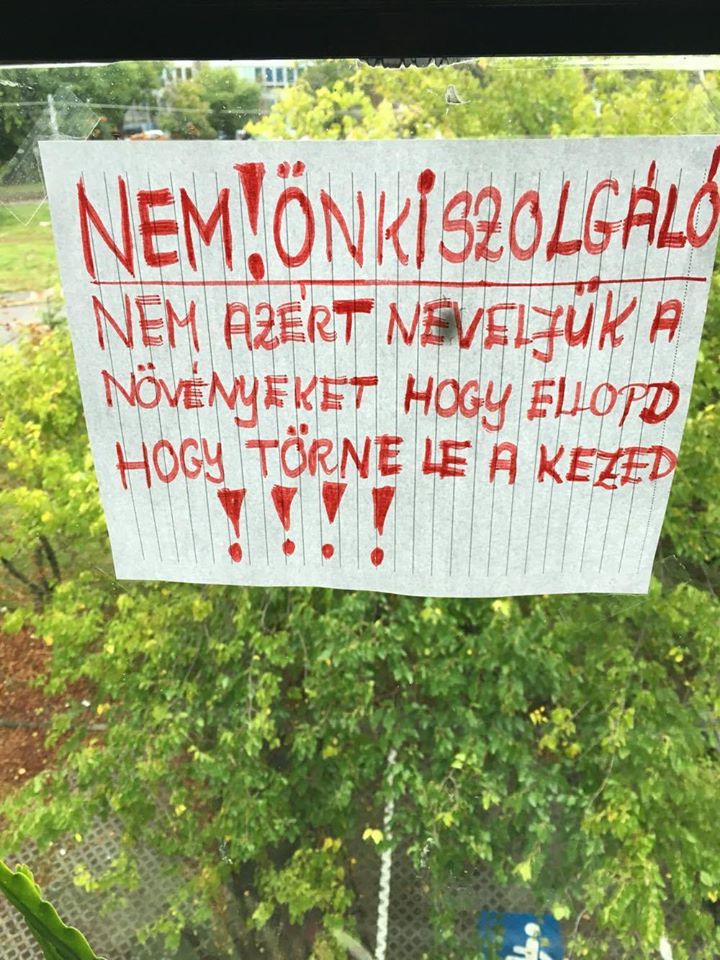 NEM! ÖNKISZOLGÁLÓ
NEM AZÉRT NEVELJÜK A
NÖVÉNYEKET HOGY ELLOPD
HOGY TÖRNE LE A KEZED
!!!!